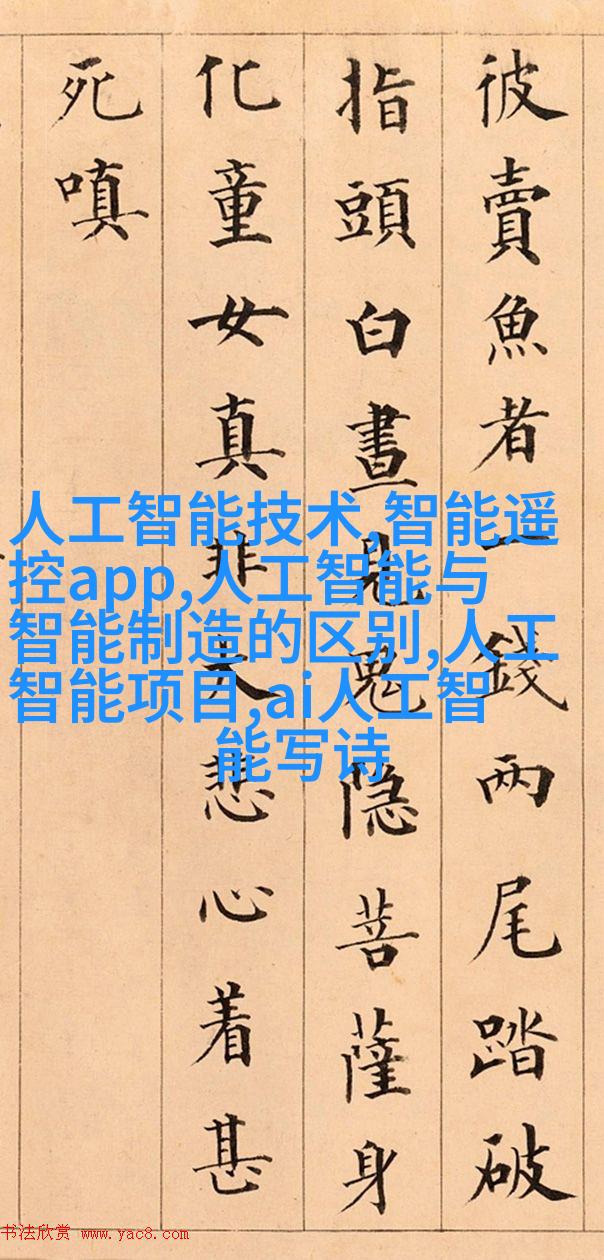 彼賣魚者一錢兩尾踏破
指頭白晝見鬼隐菩薩身
化童女真非大悲心着甚
死嗔
人工智能技术,智能遥
控app,人工智能与
智能制造的区别,人工
智能项目,ai人工智
能写诗
书法欣赏 www.yac8.com